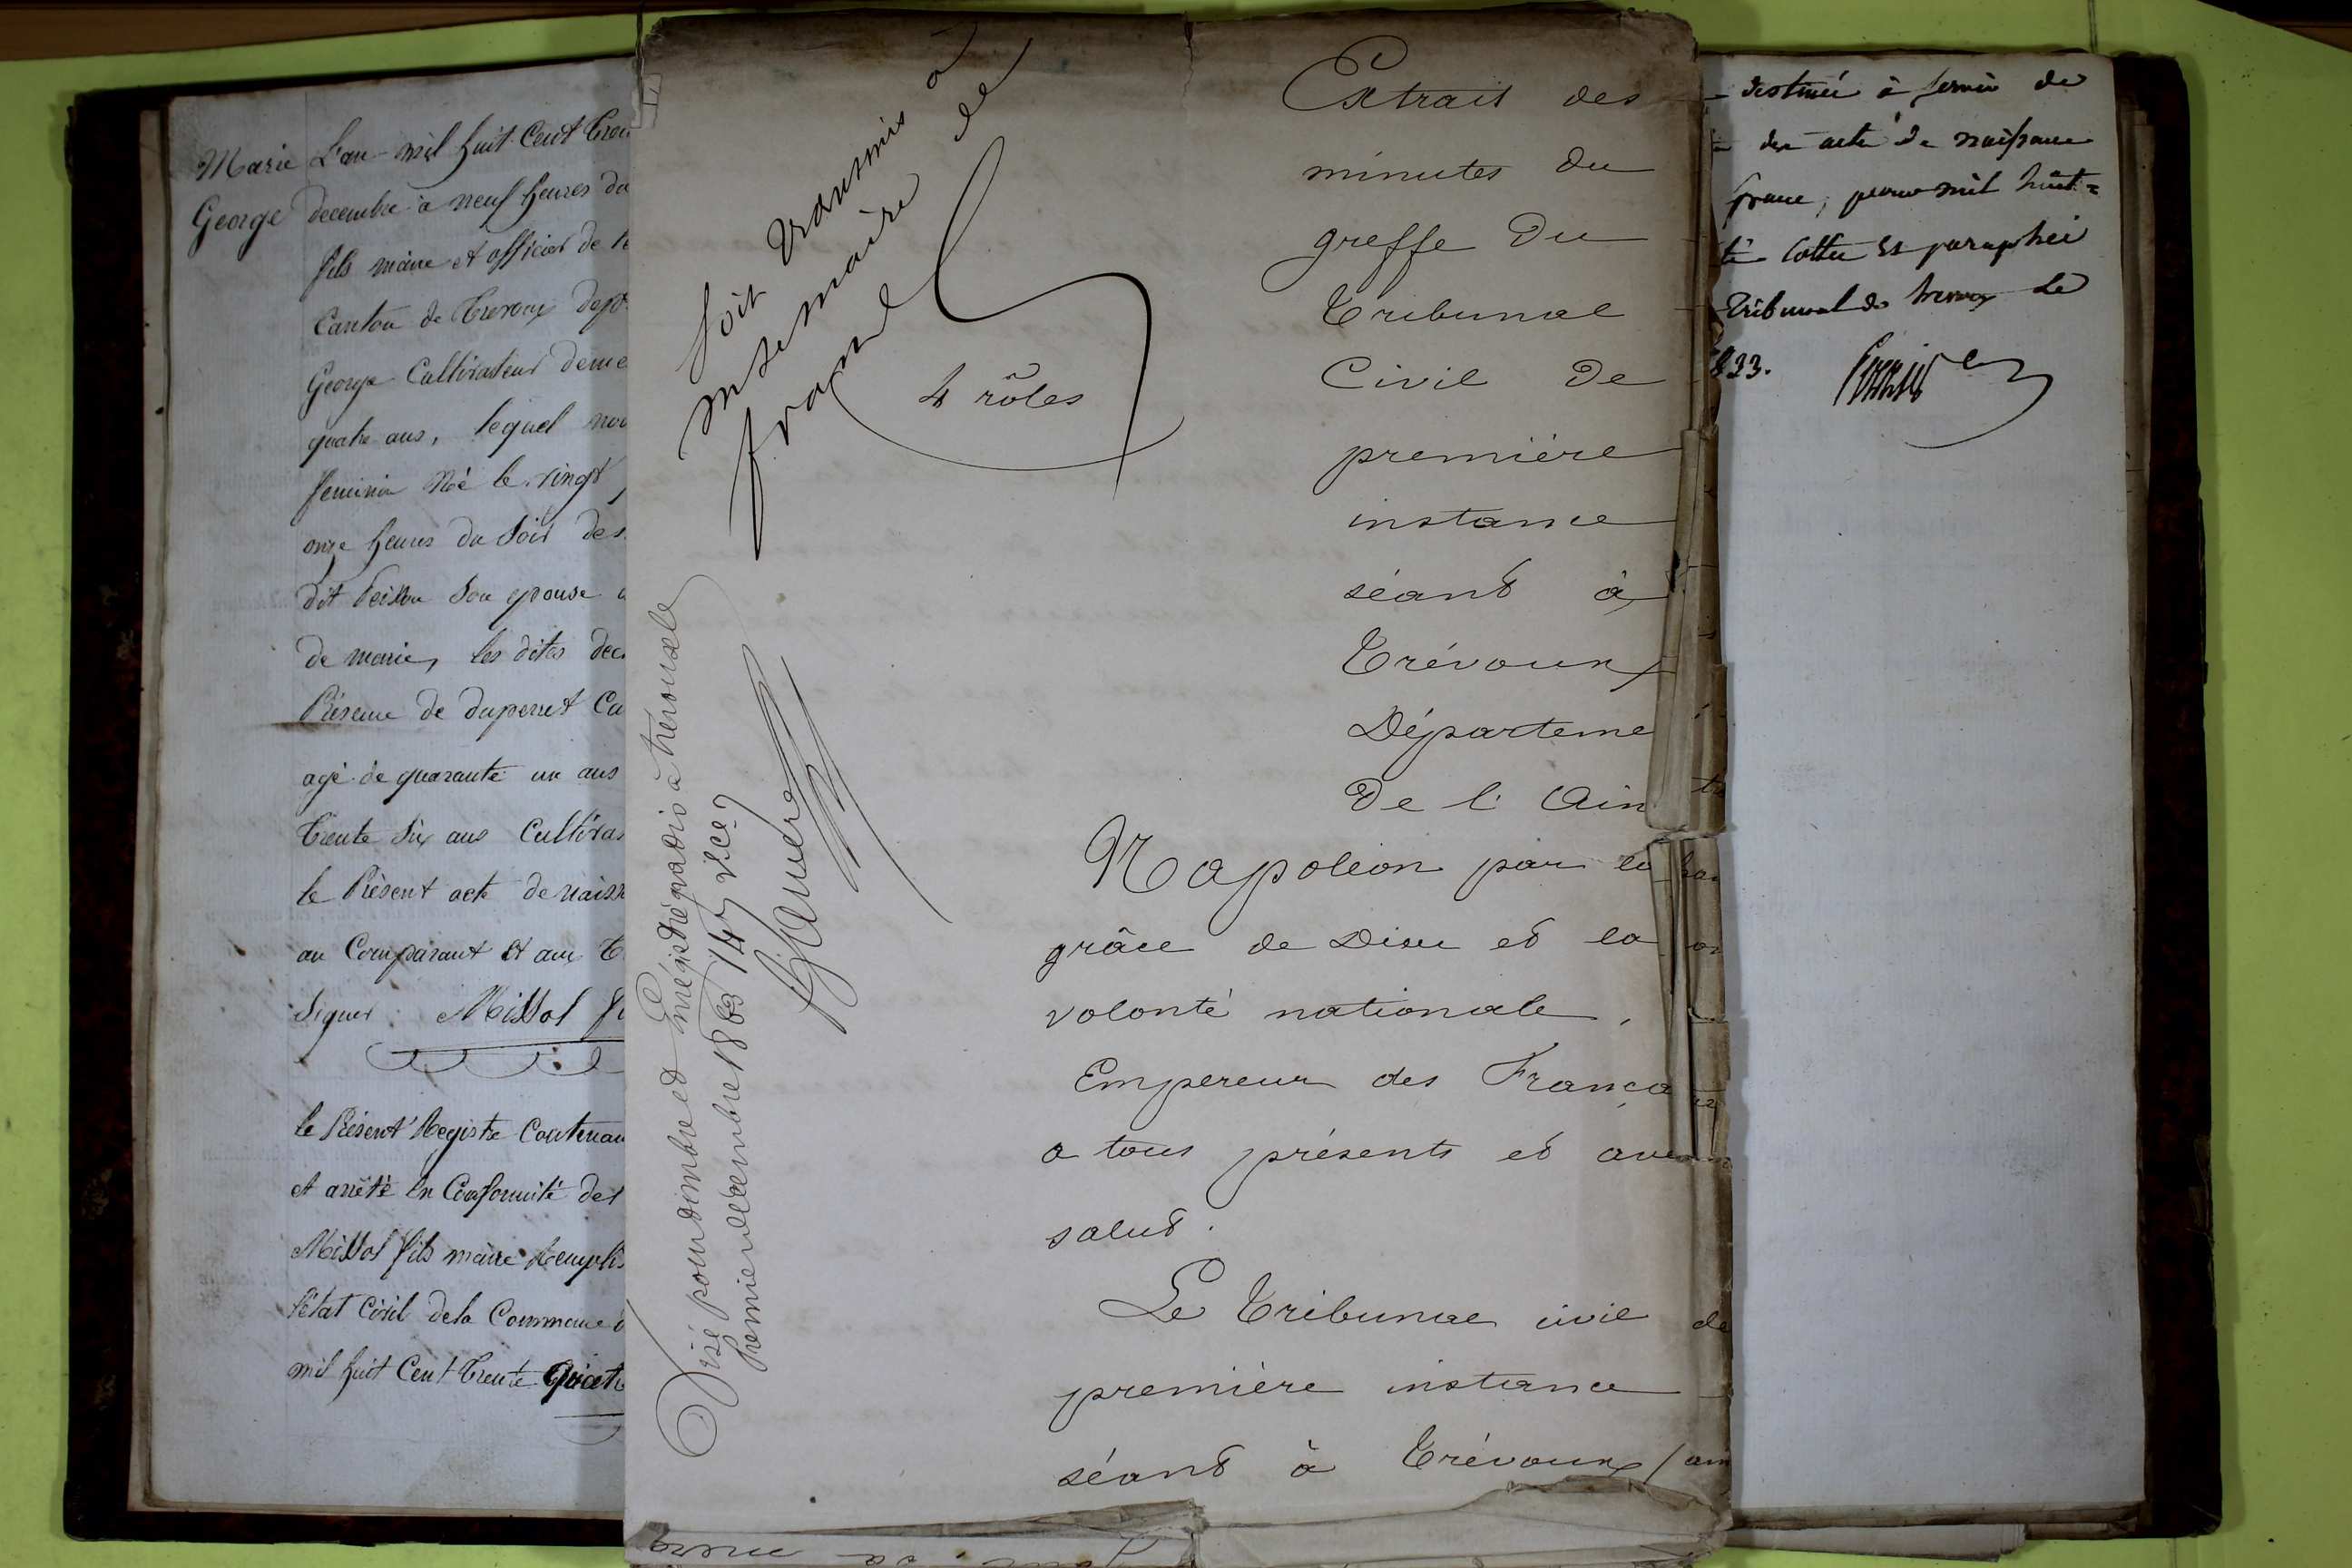 Marie
George
L'an mil huit Cent tren
decembre à neuf heures du
fils maire et officier de l'é
Canton de Trevoux dep
George Cultivateur deme
quatre ans, lequel nou
feminin Né le vingt
onze heures du Soir des
dit son epouse
de marie, les dites dec
Présence de duperret Cu
agé de quarante un ans
trente Six ans Cultivat
le Présent acte de naiss
au Comparant et aux T
Signer Missol fi
le Présent Registre Contenan
et arrêté en Conformité de l
Missol fils maire Remplis
l'état Civil de la Commune d
mil huit Cent trente
Soit transmis à
Mr le maire de
frans
4 rôles
Visé pour timbre et Enregistré gratis à Trévoux le
Premier décembre 1863
Extrait des
minutes du
greffe du
Tribunal
Civil de
première
instance
séant à
Trévoux
Départeme
de l'Ain
Napoléon par la
grâce de Dieu et la
volonté nationale,
Empereur des França
a tous présents et aveni
salut.
Le Tribunal civil de
première instance
séant à Trévoux
destiné à servir de
des actes de naissance
frans, pour mil huit=
té Cotté et paraphé
Tribunal de trevoux le
833.